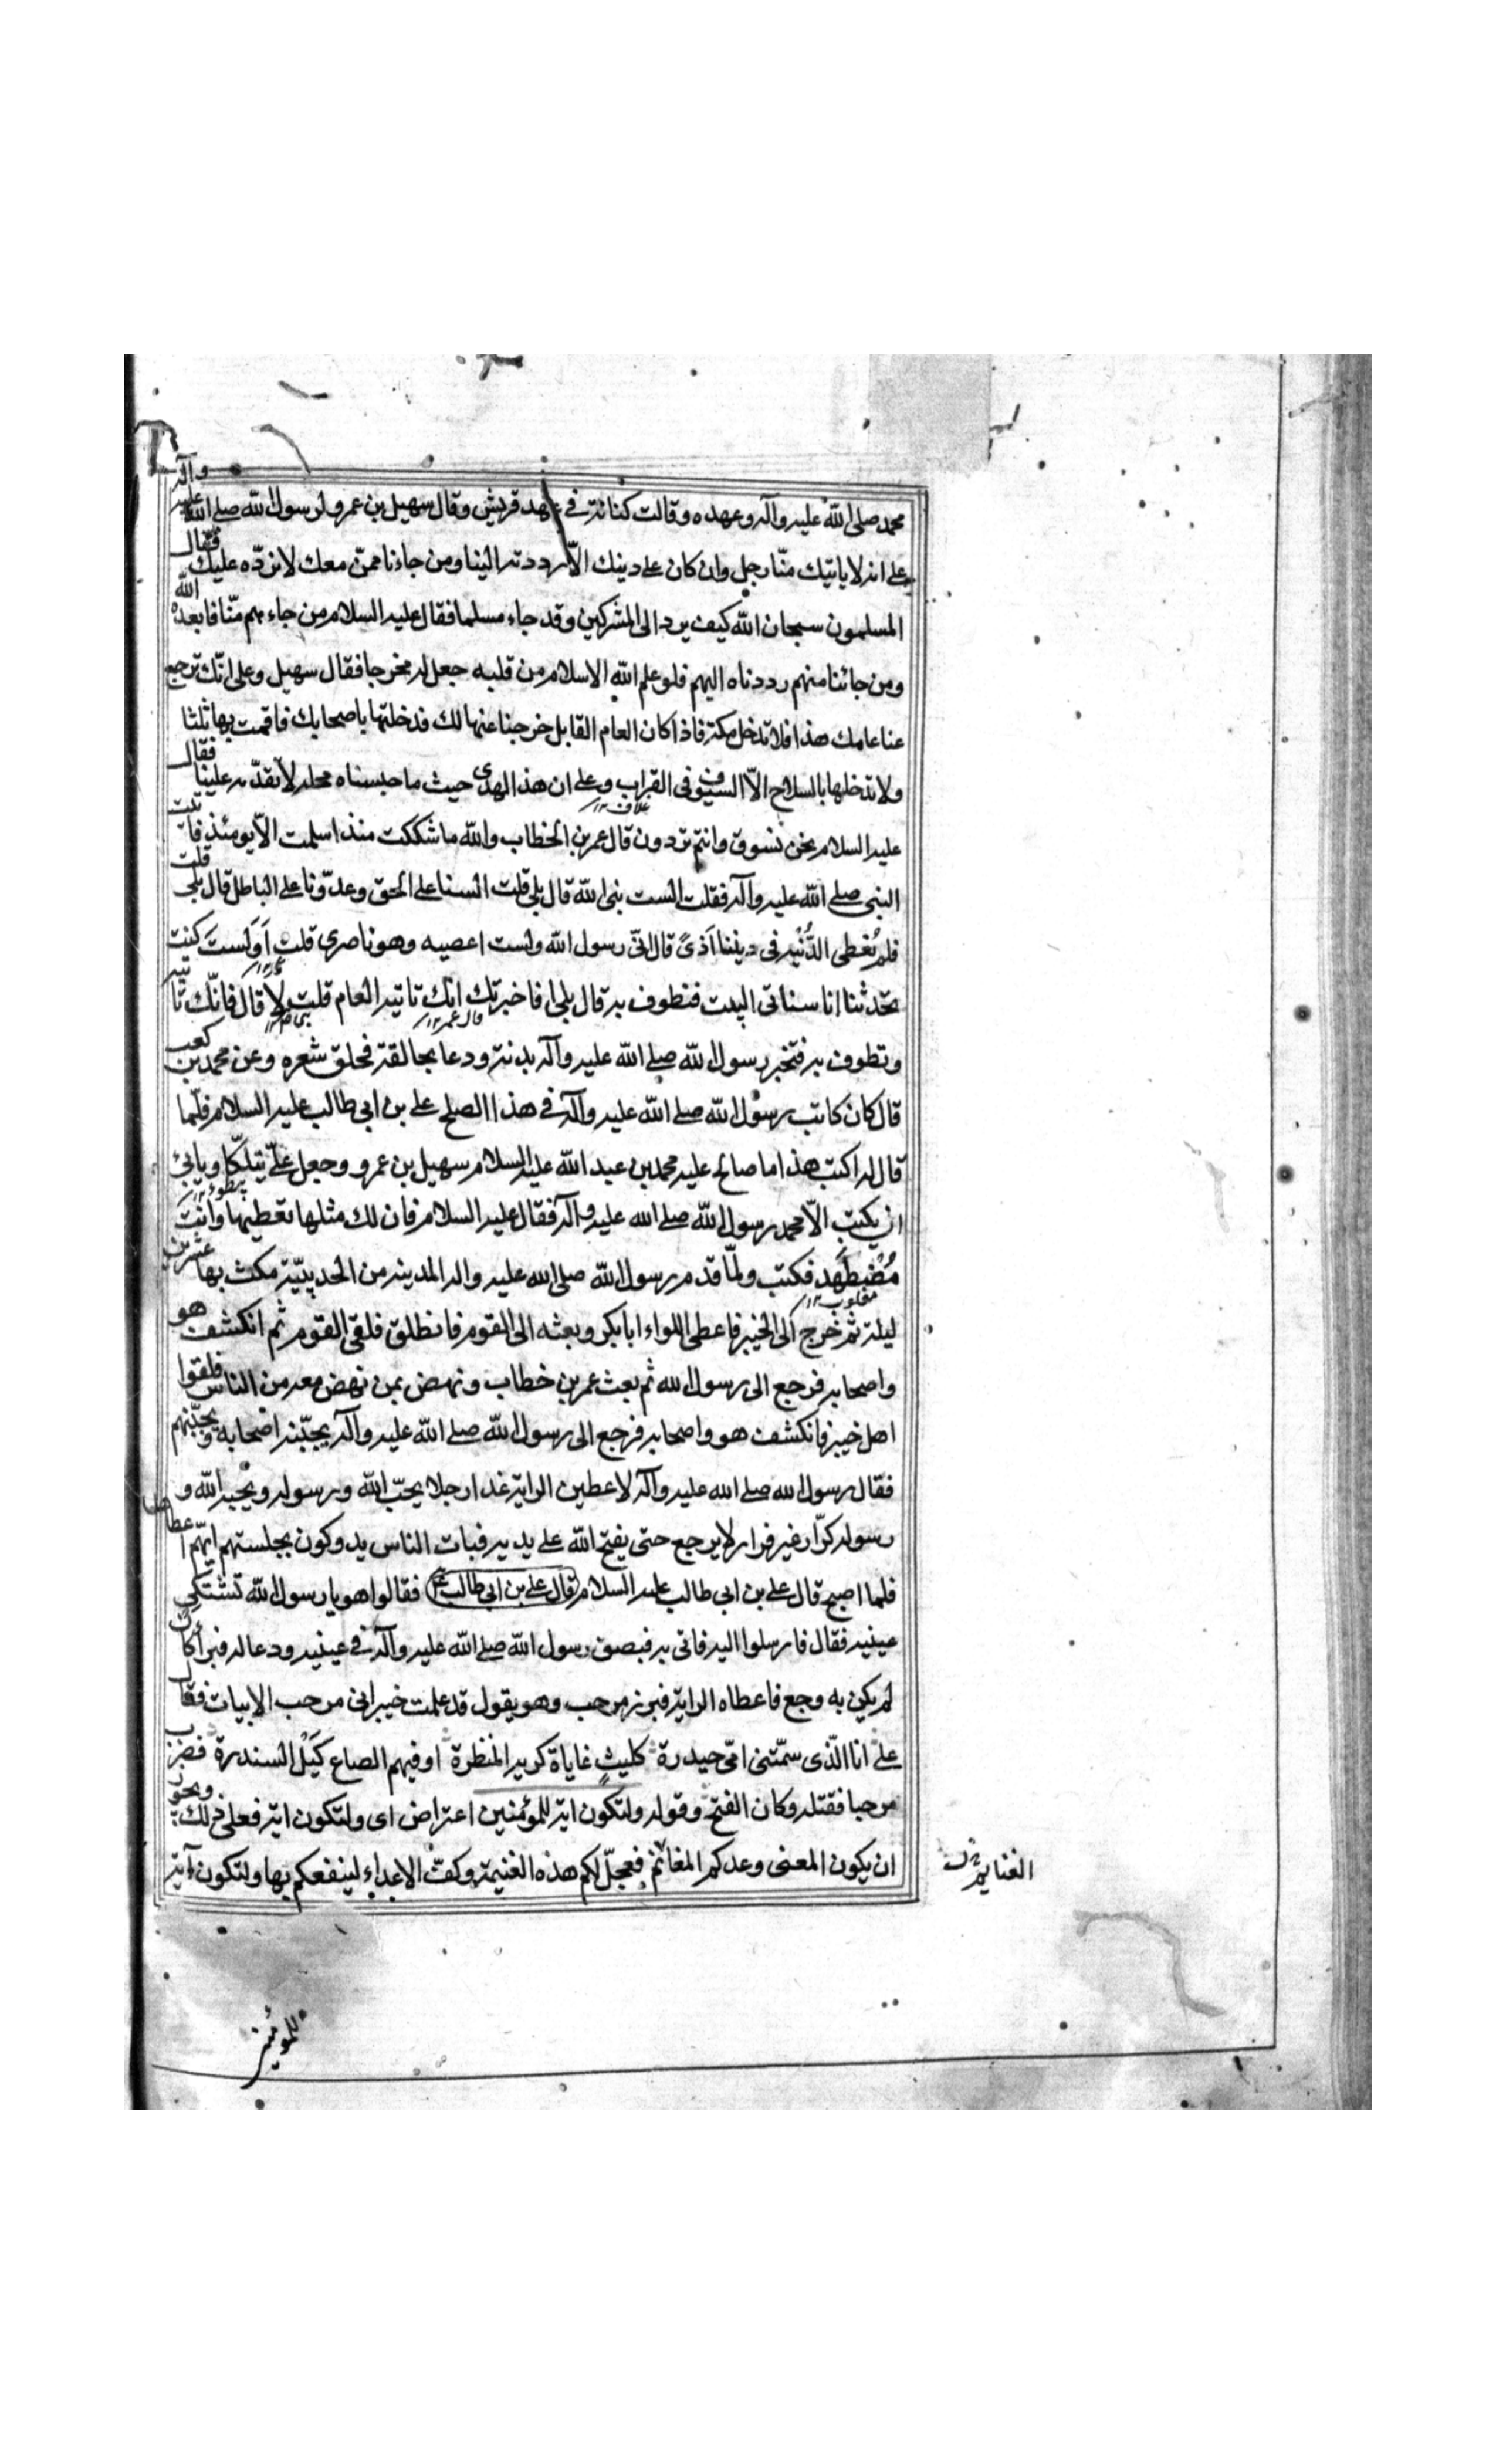 محمد صلى الله عليه وآله وعهده وقالت كنانة في عهد قريش وقال سهيل بن عمرو لرسول الله صلے الله عليه وآله
على انه لا ياتيك منّا رجل وان كان على دينك الّا رددته الينا ومن جاءنا ممّن معك لا نردّه عليك فقال
المسلمون سبحان الله كيف يرد الى المشركين وقد جاء مسلما فقال عليه السلام من جاءهم منّا فابعده الله
ومن جائنا منهم رددناه اليهم فلو علم الله الاسلام من قلبه جعل له مخرجا فقال سهيل وعلى انّك ترجع
عنا عامك هذا فلا تدخل مكة فاذا كان العام القابل خرجنا عنها لك فدخلتها باصحابك فاقمت بها ثلثا
ولا تدخلها بالسلاح الّا السيوف فى القراب وعلى ان هذا الهدى حيث ما حبسناه محله لا تقدّمه علينا فقال
غلاف ١٢
عليه السلام نحن نسوق وانتم تردون قال عمر بن الخطاب والله ما شككت منذ اسلمت الّا يومئذ فاتيت
النبى صلے الله عليه وآله فقلت الست نبى الله قال بلى قلت السنا على الحق وعدوّنا على الباطل قال بلى قلت
فلم نُعْطى الدُّنيه فى ديننا اذىً قال انّى رسول الله ولست اعصيه وهو ناصرى قلت اَوَلَستَ كنت
تحدثنا انا سناتى البيت فنطوف به قال بلى افاخبرتك انك تاتيه العام قلت لا قال فانّك تاتيه
قال عمر ١٢
وتطوف به فنحر رسول الله صلے الله عليه وآله بدنة ودعا بحالقة فحلق شعره وعن محمد بن كعب
قال كان كاتب رسول الله صلے الله عليه وآله فى هذا الصلح على بن ابى طالب عليه السلام فلمّا
قال له اكتب هذا ما صالح عليه محمد بن عبد الله عليه السلام سهيل بن عمرو وجعل علىّ يتلكّا ويابىٰ
ان يكتب الّا محمد رسول الله صلے الله عليه وآله فقال عليه السلام فان لك مثلها تعطيها وانت
مُضطهَد فكتب ولمّا قدم رسول الله صلى الله عليه واله المدينة من الحديبيّة مكث بها عشرين
مغلوب ١٢
ليلة ثم خرج الى الخيبر فاعطى اللواء ابا بكر وبعثه الى القوم فانطلق فلقى القوم ثم انكشف هو
واصحابه فرجع الى رسول الله ثم بعث عمر بن خطاب ونهض بمن نهض معه من الناس فلقوا
اهل خيبر فانكشف هو واصحابه فرجع الى رسول الله صلے الله عليه وآله يجبّنه اصحابه ويجبّنهم
فقال رسول الله صلے الله عليه وآله لاعطين الراية غدا رجلا يحبّ الله ورسوله ويحبه الله و
رسوله كرّار غير فرار لا يرجع حتى يفتح الله على يديه فبات الناس يدوكون بجلستهم ايّهم يعطاها
فلما اصبح قال على بن ابى طالب عليه السلام قال على بن ابى طالب ع فقالوا هو يا رسول الله تشتكى
عينيه فقال فارسلوا اليه فاتى به فبصق رسول الله صلے الله عليه وآله فى عينيه ودعا له فبرأ كان
لم يكن به وجع فاعطاه الراية فبرز مرحب وهو يقول قد علمت خيبر انى مرحب الابيات فقال
على انا الّذى سمّتنى امّى حيدرة كليث غاباة كريه المنظرة اوفيهم الصاع كَيْل السندرة فضرب
مرحبا فقتله وكان الفتح وقوله ولتكون اية للمؤمنين اعتراض اى ولتكون اية فعلى ذلك ويجوز
ان يكون المعنى وعدكم المغانم فعجلّ لكم هذه الغنيمة وكفّ الاعداء لينفعكم بها ولتكون آية
الغنايم
للمؤمنين